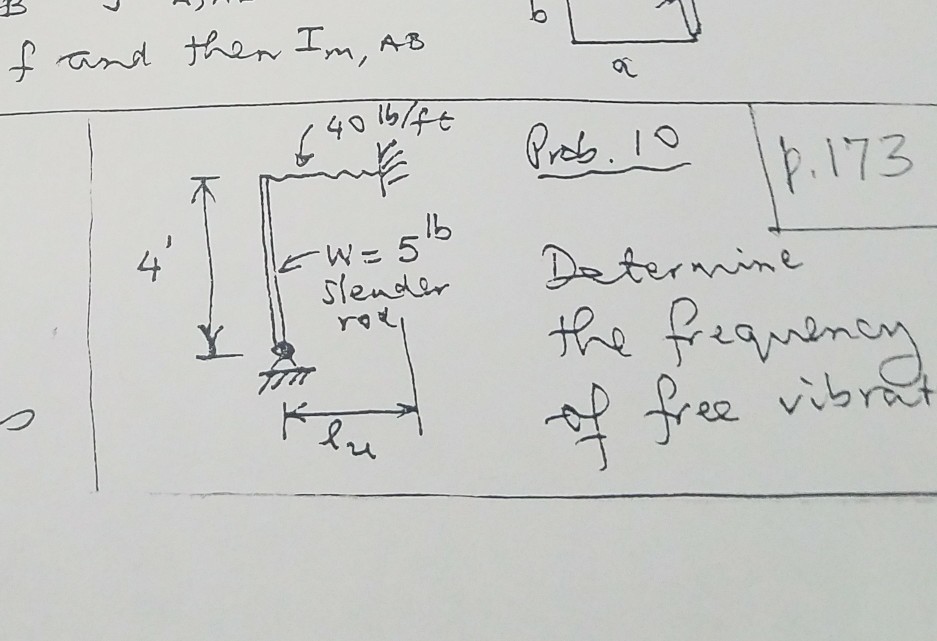 f and then Im, AB
b
a
40 lb/ft
Prob. 10
p.173
4'
W = 5 lb
slender
rod
lu
Determine
the frequency
of free vibrat